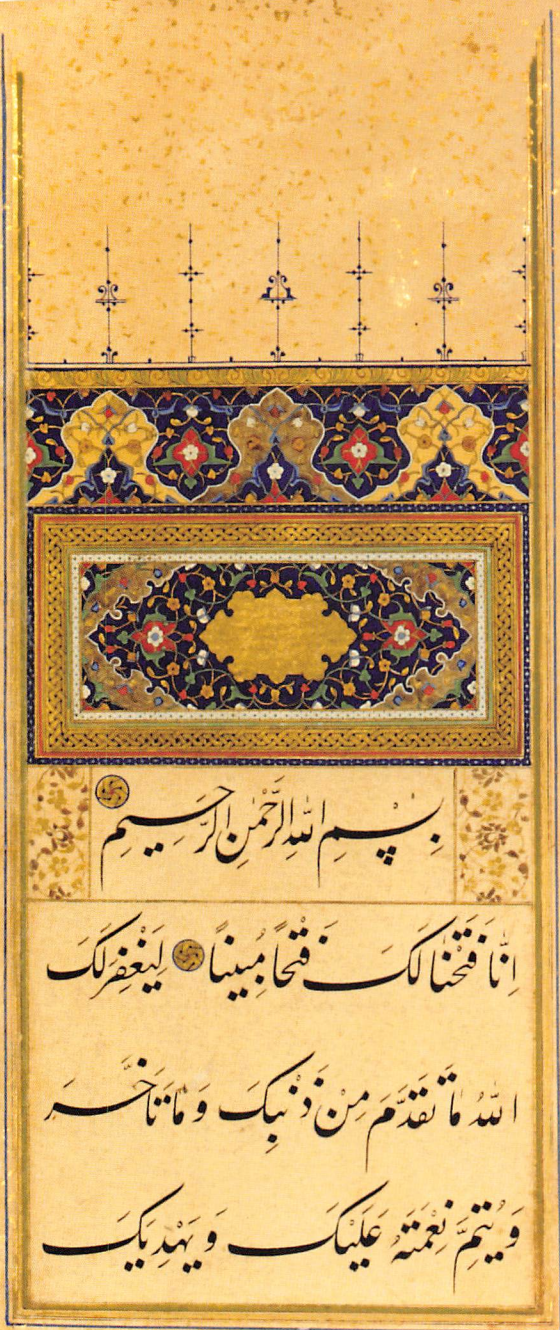 بِسْمِ اللهِ الرَّحْمٰنِ الرَّحِيمِ
اِنَّا فَتَحْنَا لَكَ فَتْحًا مُبِينًا لِيَغْفِرَ لَكَ
اللهُ مَا تَقَدَّمَ مِنْ ذَنْبِكَ وَ مَا تَاَخَّرَ
وَ يُتِمَّ نِعْمَتَهُ عَلَيْكَ وَ يَهْدِيَكَ